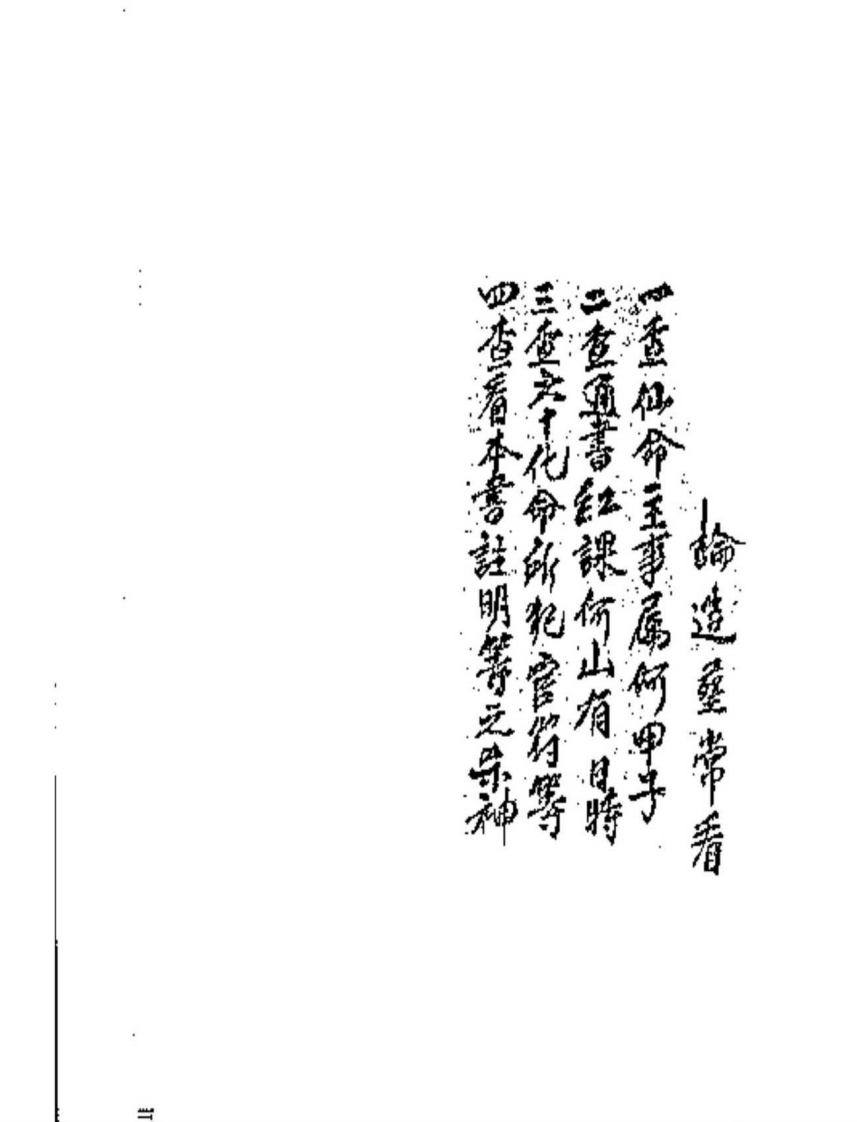 論造葬常看
一查仙命主事属何甲子
二查通書紅課何山有日時
三查六十化命所犯官符等
四查看本書註明等之杀神
三